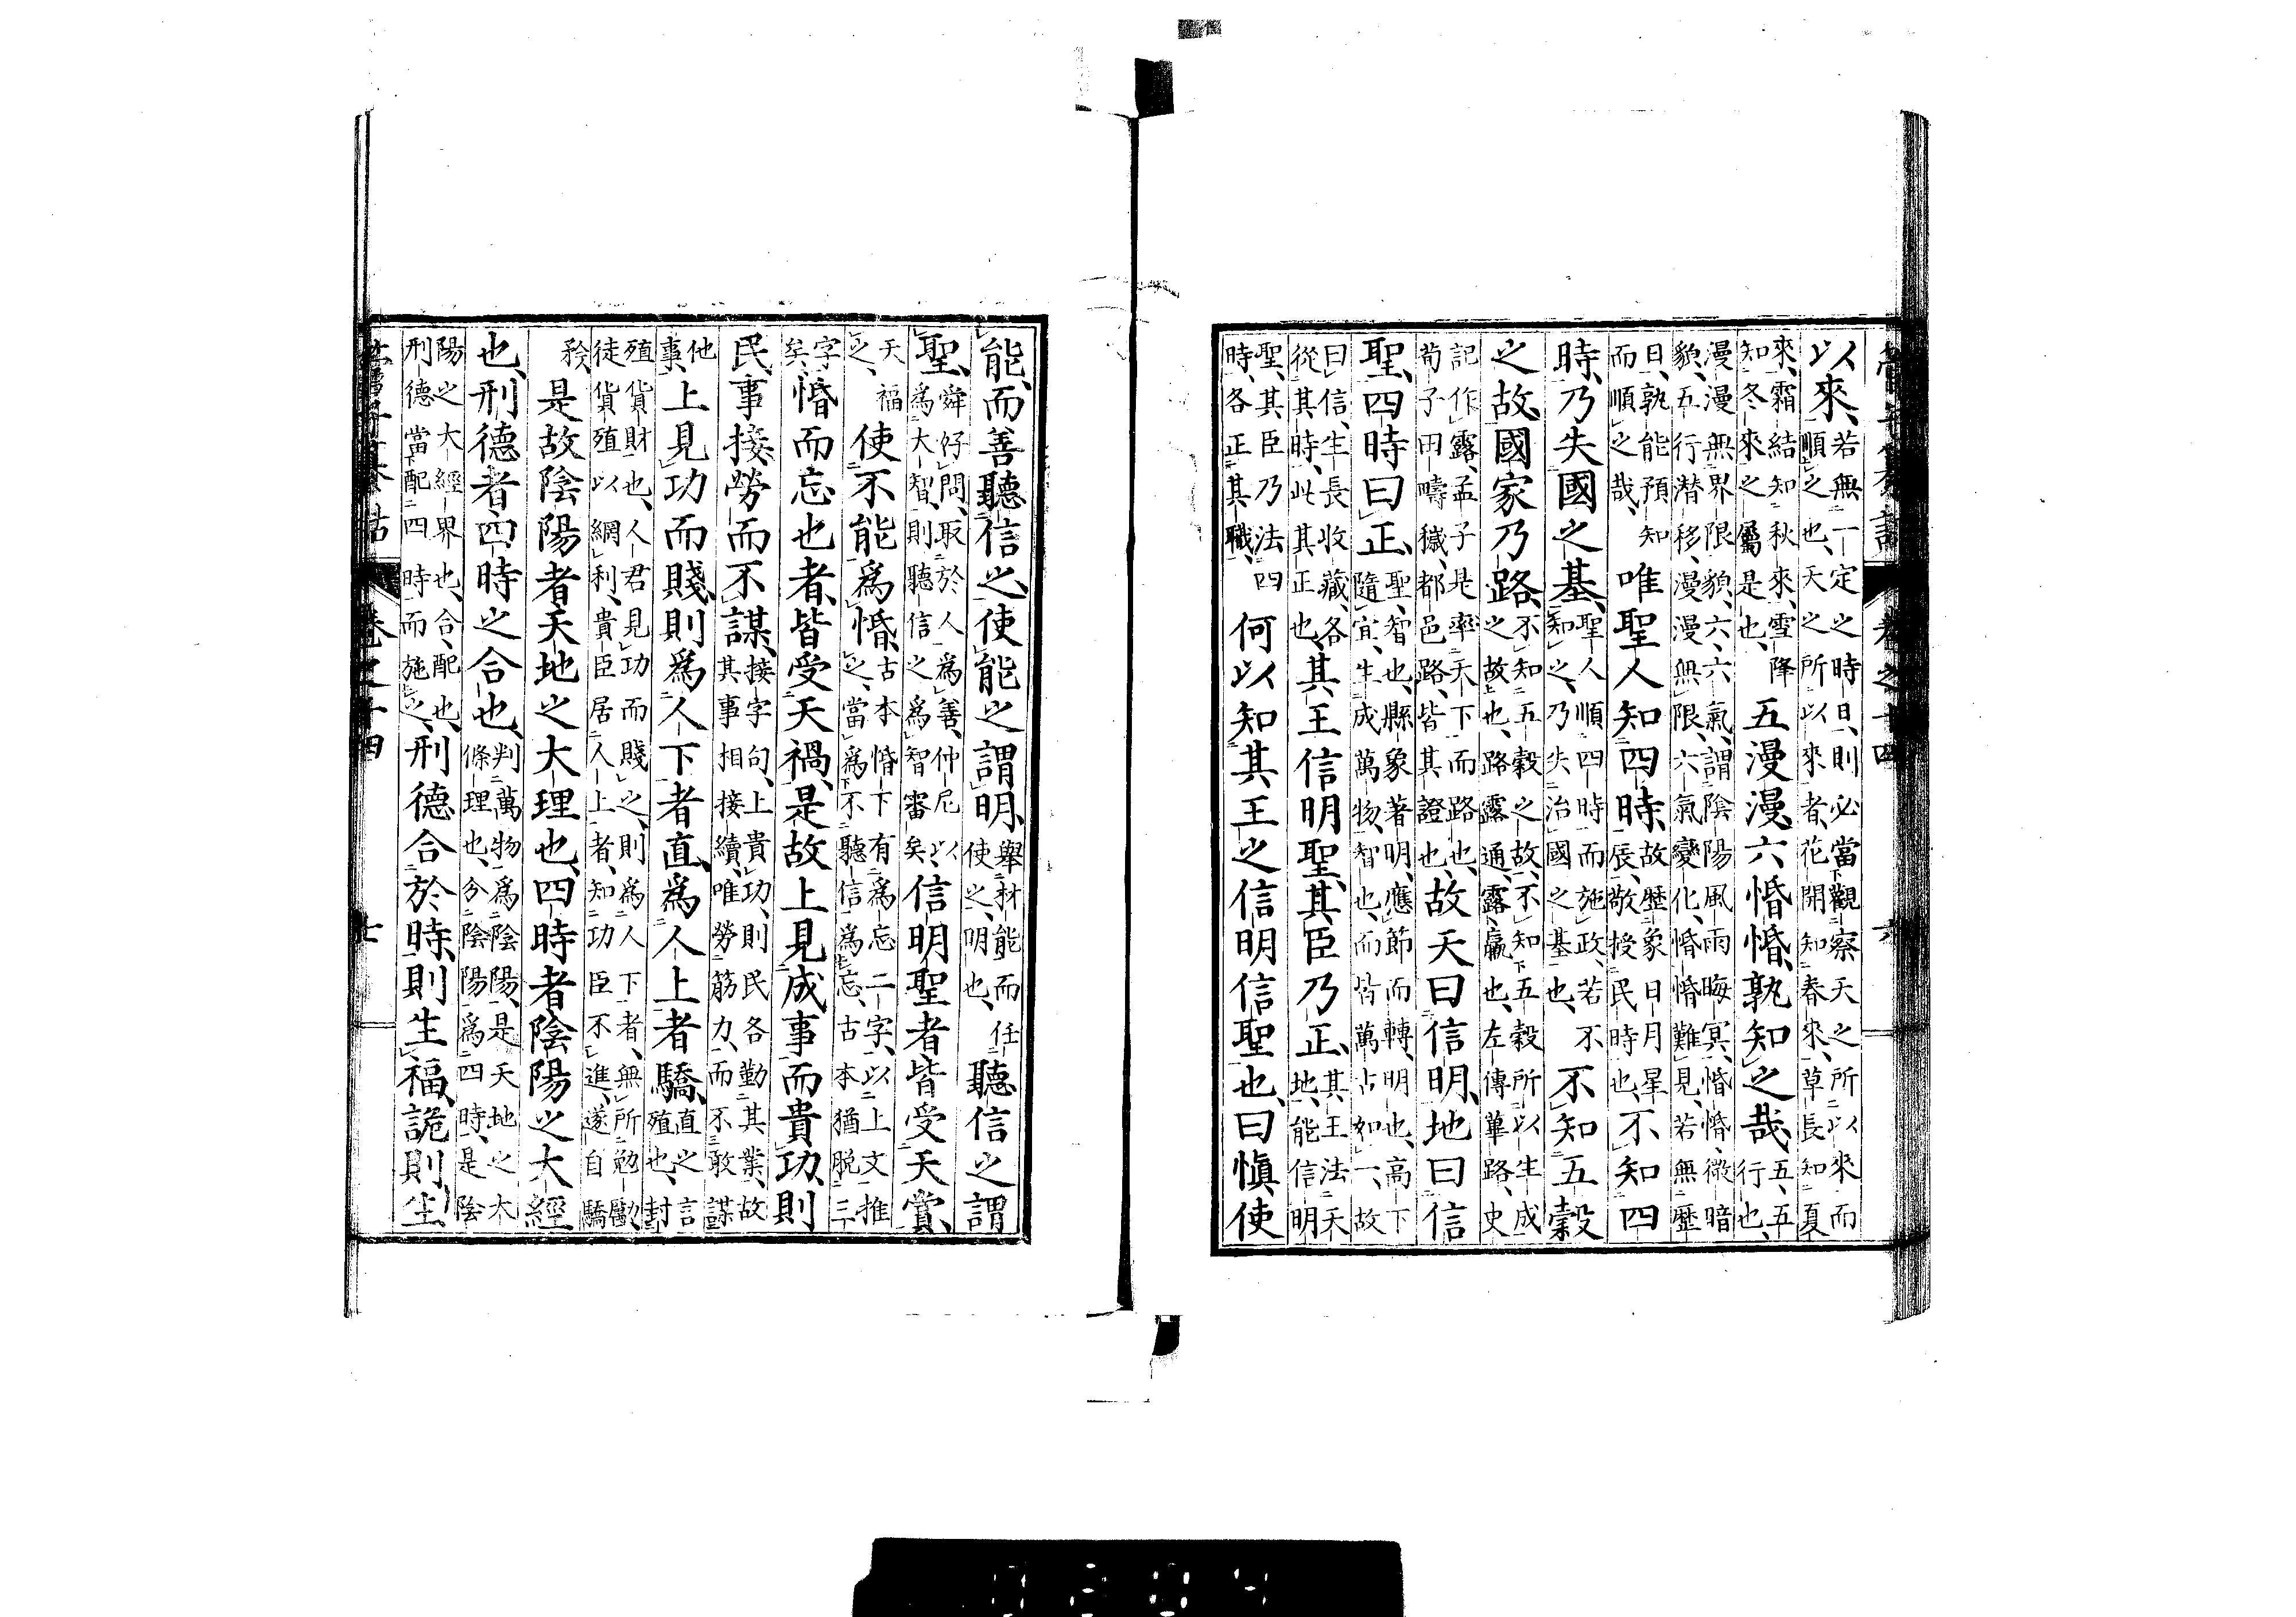 管子纂詁 卷之十四 六
以來、若無一定之時日、則必當觀察天之所以來而
順之也、天之所以來者、花開知春來、草長知夏
來、霜結知秋來、雪降
知冬來之屬是也、五漫漫六惛惛、孰知之哉、五、五
行也、
漫漫無界限貌、六、六氣、謂陰陽風雨晦冥、惛惛、微暗
貌、五行潛移、漫漫無限、六氣變化、惛惛難見、若無歷
日、孰能預知
而順之哉、唯聖人知四時、故歷象日月星
辰、敬授民時也、不知四
時、乃失國之基、聖人順四時而施政、若不
知之、乃失治國之基也、不知五穀
之故、國家乃路、不知五穀之故、不知五穀所以生成
之故也、路露通、露、羸也、左傳篳路、史
記作露、孟子是率天下而路也、
荀子田疇穢、都邑路、皆其證也、故天曰信明、地曰信
聖、四時曰正、聖、智也、縣象著明、應節而轉、明也、高下
隨宜、生成萬物、智也、而皆萬古如一、故
曰信、生長收藏、各
從其時、此其正也、其王信明聖、其臣乃正、其王法天
地、能信明
聖、其臣乃法四
時、各正其職、何以知其王之信明信聖也、曰愼使
能、而善聽信之、使能之謂明、舉材能而任
使之、明也、聽信之謂
聖、舜好問、取於人爲善、仲尼以
爲大智、則聽信之爲智審矣、信明聖者皆受天賞、
天福
之、使不能爲惛、古本惛下有爲忘二字、以上文推
之、當爲不聽信爲忘、古本猶脫三
字
矣、惛而忘也者、皆受天禍、是故上見成事而貴功、則
民事接勞而不謀、接字句、上貴功、則民各勤其業、故
其事相接續、唯勞筋力、而不敢謀
他
事、上見功而賤、則爲人下者直、爲人上者驕、直之言
殖也、封
殖貨財也、人君見功而賤之、則爲人下者、無所勉勵、
徒貨殖以網利、貴臣居人上者、知功臣不進、遂自驕
矜、是故陰陽者天地之大理也、四時者陰陽之大經
也、刑德者、四時之合也、判萬物爲陰陽、是天地之大
條理也、分陰陽爲四時、是陰
陽之大經界也、合、配也、
刑德當配四時而施之、刑德合於時、則生福、詭則生
管子纂詁 卷之十四 七